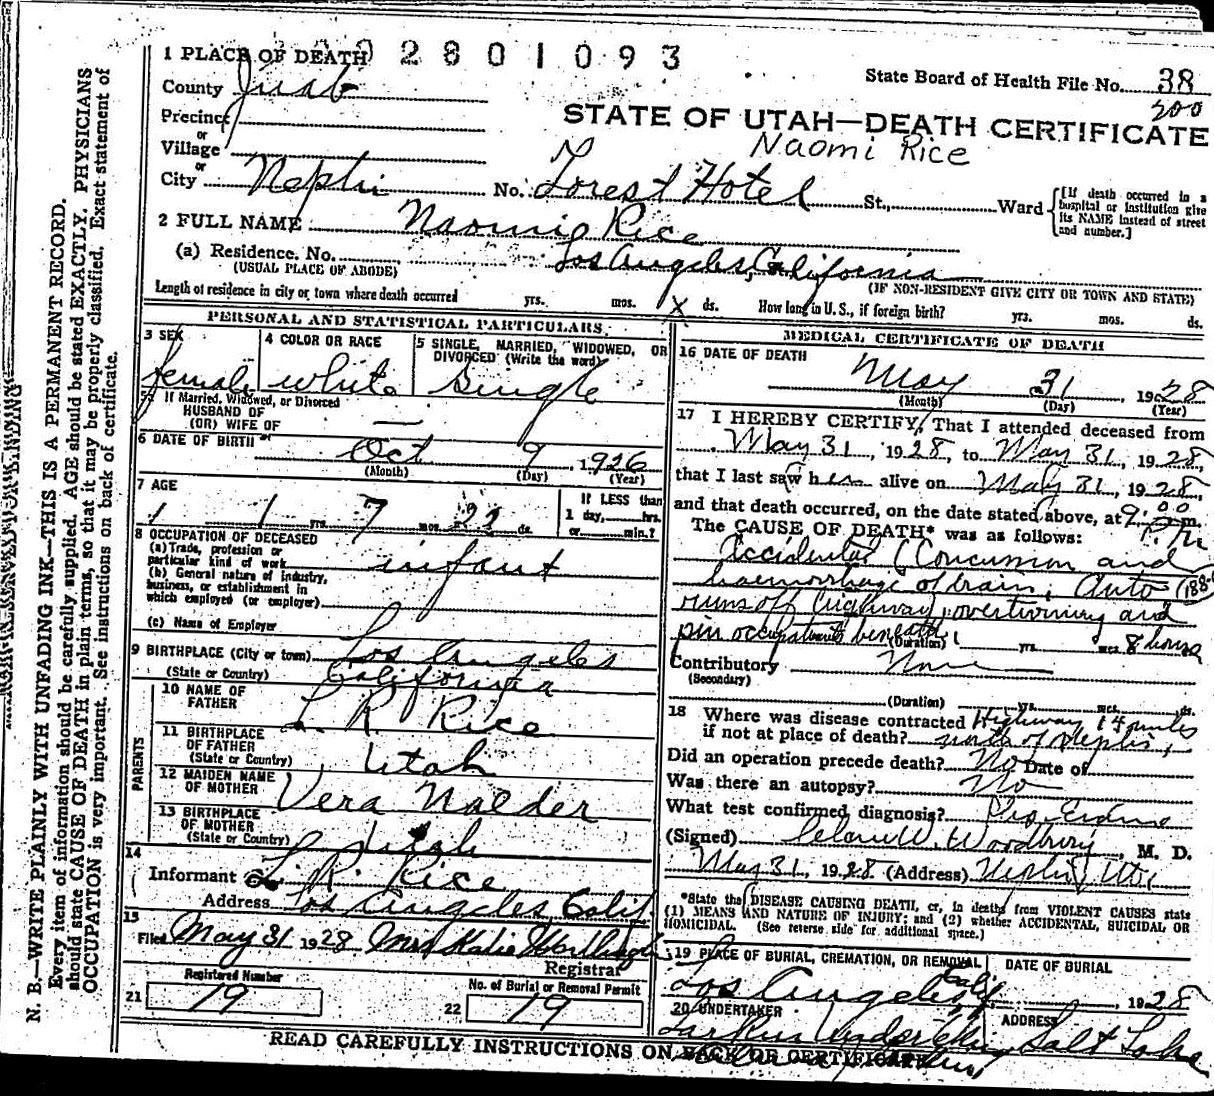 1 PLACE OF DEATH 2 8 0 1 0 9 3
State Board of Health File No. 38
200
County Juab
STATE OF UTAH—DEATH CERTIFICATE
Precinct
or
Naomi Rice
Village
or
City Nephi No. Forest Hotel St., Ward
[If death occurred in a hospital or institution give its NAME instead of street and number.]
2 FULL NAME Naomi Rice
(a) Residence. No. Los Angeles, California
(USUAL PLACE OF ABODE) (IF NON-RESIDENT GIVE CITY OR TOWN AND STATE)
Length of residence in city or town where death occurred yrs. mos. X ds. How long in U. S., if foreign birth? yrs. mos. ds.
PERSONAL AND STATISTICAL PARTICULARS
3 SEX
female
4 COLOR OR RACE
white
5 SINGLE, MARRIED, WIDOWED, OR DIVORCED (Write the word)
Single
If Married, Widowed, or Divorced
HUSBAND OF
(OR) WIFE OF —
6 DATE OF BIRTH Oct 9, 1926
(Month) (Day) (Year)
7 AGE
1 yrs. 7 mos. 22 ds.
If LESS than
1 day, hrs.
or min.?
8 OCCUPATION OF DECEASED
(a) Trade, profession or
particular kind of work infant
(b) General nature of industry,
business, or establishment in
which employed (or employer)
(c) Name of Employer
9 BIRTHPLACE (City or town) Los Angeles
(State or Country) California
PARENTS
10 NAME OF FATHER L. R. Rice
11 BIRTHPLACE OF FATHER
(State or Country) Utah
12 MAIDEN NAME OF MOTHER Vera Nalder
13 BIRTHPLACE OF MOTHER
(State or Country) Utah
14
Informant L. R. Rice
Address Los Angeles Calif
15
Filed May 31 1928 Mrs Katie
Registrar
Registered Number
21 19
No. of Burial or Removal Permit
22 19
MEDICAL CERTIFICATE OF DEATH
16 DATE OF DEATH
May 31, 1928
(Month) (Day) (Year)
17 I HEREBY CERTIFY, That I attended deceased from
May 31, 1928, to May 31, 1928,
that I last saw her alive on May 31, 1928,
and that death occurred, on the date stated above, at 9:00 P.m.
The CAUSE OF DEATH* was as follows:
Accidental (Concussion and
haemorrhage of brain, Auto 188
runs off highway, overturning and
pin occupants beneath.
(Duration) yrs. mos. 8 hours
Contributory None
(Secondary)
(Duration) yrs. mos. ds.
18 Where was disease contracted Highway 14 miles
if not at place of death? north of Nephi,
Did an operation precede death? No Date of
Was there an autopsy? No
What test confirmed diagnosis?
(Signed) W. Woodbury, M. D.
May 31, 1928 (Address) Nephi, Ut.
*State the DISEASE CAUSING DEATH, or, in deaths from VIOLENT CAUSES state
(1) MEANS AND NATURE OF INJURY; and (2) whether ACCIDENTAL, SUICIDAL OR
HOMICIDAL. (See reverse side for additional space.)
19 PLACE OF BURIAL, CREMATION, OR REMOVAL DATE OF BURIAL
Los Angeles Calif. , 1928
20 UNDERTAKER ADDRESS
Larkin Salt Lake
READ CAREFULLY INSTRUCTIONS ON BACK OR CERTIFICATE
N. B.—WRITE PLAINLY WITH UNFADING INK—THIS IS A PERMANENT RECORD.
Every item of information should be carefully supplied. AGE should be stated EXACTLY. PHYSICIANS
should state CAUSE OF DEATH in plain terms, so that it may be properly classified. Exact statement of
OCCUPATION is very important. See instructions on back of certificate.